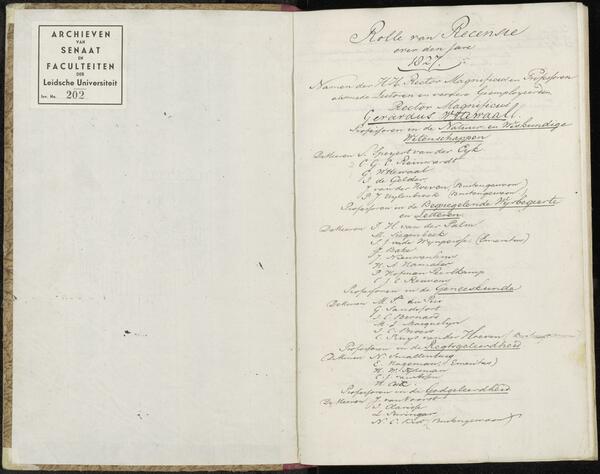 ARCHIEVEN
VAN
SENAAT
EN
FACULTEITEN
DER
Leidsche Universiteit
Inv. No. 202
Rolle van Recensie
over den Jare
1827.
Namen der H.H. Rector Magnificus en Professoren
alsmede Lectoren en verdere Geemployeerden
Rector Magnificus
Gerardus Wttewaall
Professoren in de Natuur en Wiskundige
Wetenschappen
De Heeren S. Speyert van der Eyk
C. G. C. Reinwardt
G. Wttewaal
J. de Gelder
J. van der Hoeven (Buitengewoon)
P. J. Uylenbroek (Buitengewoon)
Professoren in de Bespiegelende Wijsbegeerte
en Letteren
De Heeren J. H. van der Palm
M. Siegenbeek
(Emeritus)
J. Bake
J. Nieuwenhuis
H. A. Hamaker
P. Hofman Peerlkamp
C. J. C. Reuvens
Professoren in de Geneeskunde
De Heeren M. S. du Pui
G. Sandifort
J. C. Bernard
M. J. Macquelyn
J. C. Broers
C. Pruys van der Hoeven
Professoren in de Regtsgeleerdheid
De Heeren N. Smallenburg
E. Hageman (Emeritus)
H. W. Tydeman
C. J. van Assen
H. Cock
Professoren in de Godgeleerdheid
De Heeren J. van Voorst
J. Clarisse
L. Suringar
N. C. Kist (Buitengewoon)